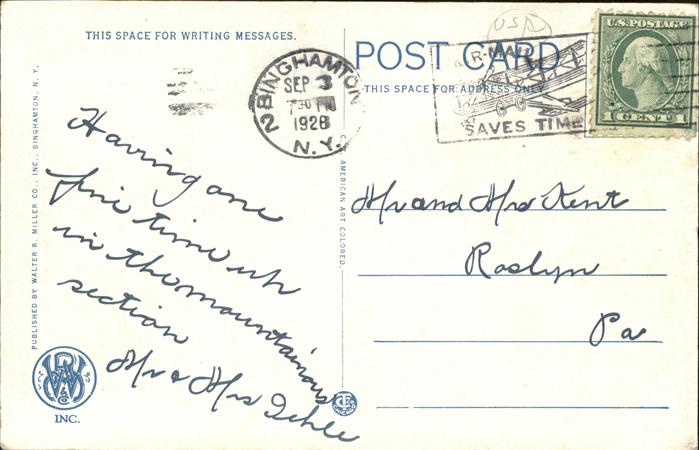 THIS SPACE FOR WRITING MESSAGES.
POST CARD
THIS SPACE FOR ADDRESS ONLY
USA
BINGHAMTON
SEP 3
7 30 PM
1928
N.Y.
2
AIR MAIL
SAVES TIME
U.S. POSTAGE
1 CENT 1
Having one
fine time up
in the mountainous
section
Mr & Mrs
Mr and Mrs Kent
Roslyn
Pa
PUBLISHED BY WALTER R. MILLER CO., INC., BINGHAMTON, N. Y.
C. T. AMERICAN ART COLORED.
INC.